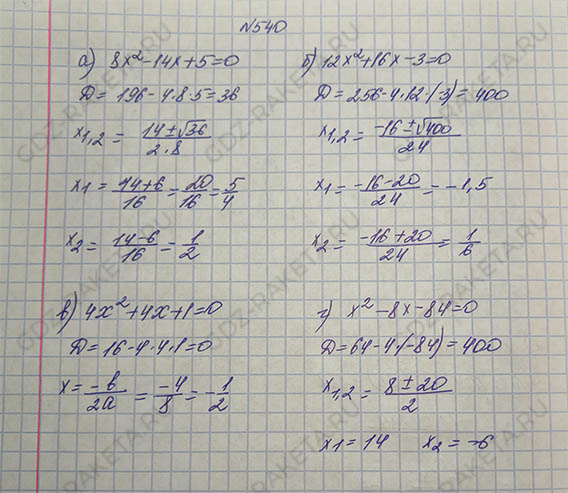 №540
а) 8x²-14x+5=0
D=196-4·8·5=36
x₁,₂ = (14±√36)/(2·8)
x₁ = (14+6)/16 = 20/16 = 5/4
x₂ = (14-6)/16 = 1/2
б) 12x²+16x-3=0
D=256-4·12·(-3)=400
x₁,₂ = (-16±√400)/24
x₁ = (-16-20)/24 = -1,5
x₂ = (-16+20)/24 = 1/6
в) 4x²+4x+1=0
D=16-4·4·1=0
x = -b/2a = -4/8 = -1/2
г) x²-8x-84=0
D=64-4·(-84)=400
x₁,₂ = (8±20)/2
x₁ = 14 x₂ = -6
GDZ-RAKETA.RU